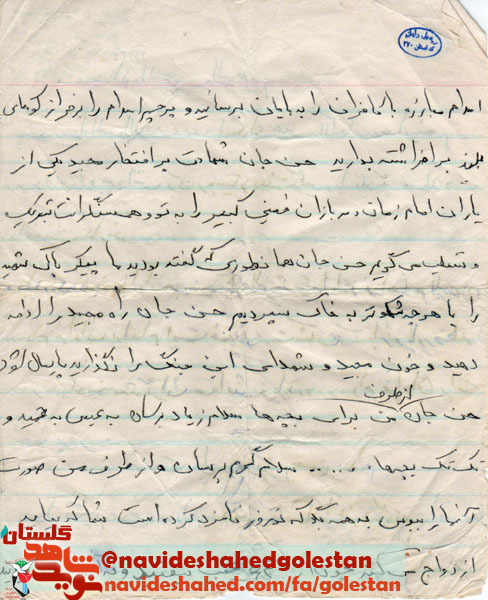 اسلام مبارزه با کافران را به پایان برسانید و پرچم اسلام را بر فراز کوههای
بلند برافراشته بدارید حسن جان شهادت پر افتخار مجید یکی از
یاران امام زمان و سربازان خمینی کبیر را به تو و همسنگرانت تبریک
و تسلیت می گویم حسن جان همانطوری که گفته بودید ما پیکر پاک شهید
را با هر چه باشکوهتر به خاک سپردیم حسن جان راه مجید را ادامه
دهید و خون مجید و شهدای این جنگ را نگذارید پایمال شود
از طرف
حسن جان من برای بچه ها سلام زیاد برسان به عیسی به حمید و
تک تک بچه ها و ..... سلام گرم برسان و از طرف من صورت
آنها را ببوس به همه بگو که نوروز نامزد کرده است شما که نیایید
ازدواج نمی کند
گلستان
نوید شاهد
@navideshahedgolestan
navideshahed.com/fa/golestan